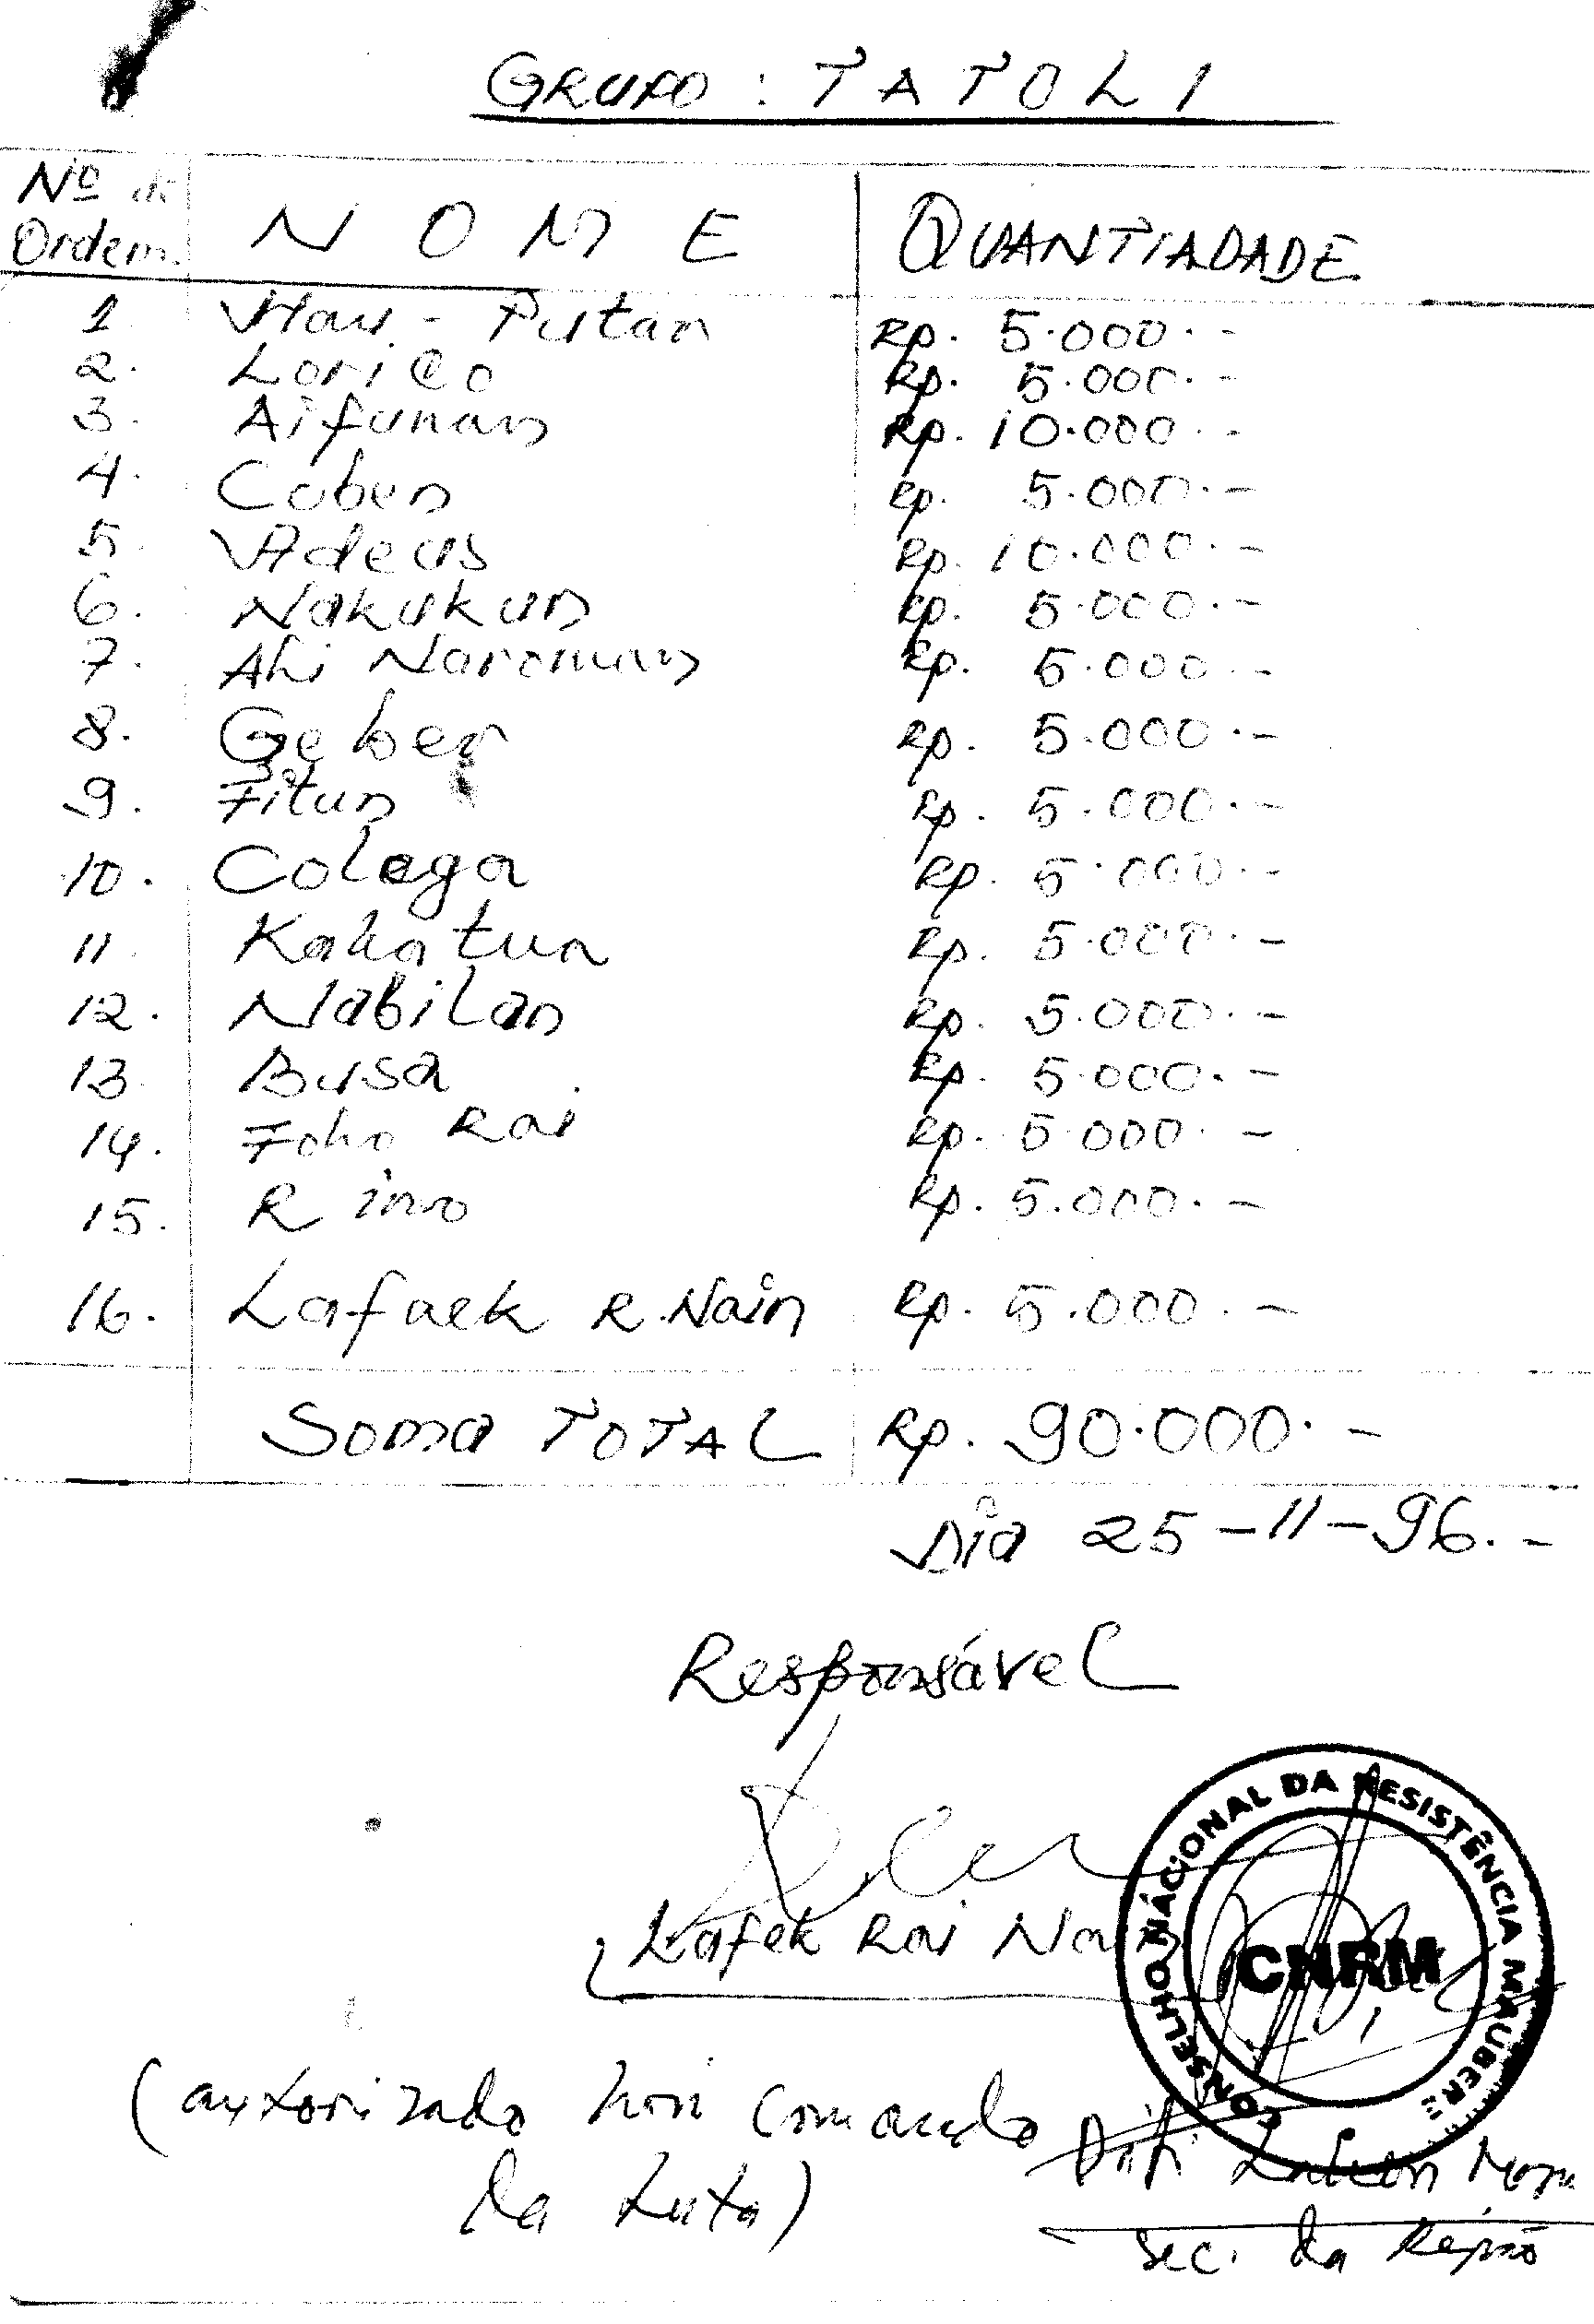 GRUPO : TATOLI
Nº de Ordem. NOME QUANTIADADE
1 Hau - Putan Rp. 5.000.-
2. Lorico Rp. 5.000.-
3. Aifunan Rp. 10.000.-
4. Coben Rp. 5.000.-
5. Adeus Rp. 10.000.-
6. Nakukun Rp. 5.000.-
7. Ahi Naroman Rp. 5.000.-
8. Geber Rp. 5.000.-
9. Fitun Rp. 5.000.-
10. Colega Rp. 5.000.-
11. Kakatua Rp. 5.000.-
12. Nabilan Rp. 5.000.-
13. Busa Rp. 5.000.-
14. Foho Rai Rp. 5.000.-
15. Rino Rp. 5.000.-
16. Lafaek R. Nain Rp. 5.000.-
Soma TOTAL Rp. 90.000.-
Dia 25-11-96.-
Responsável
Lafek Rai
CONSELHO NACIONAL DA RESISTÊNCIA MAUBERE
CNRM
(autorizado comando
da Luta)
Sec. da Região